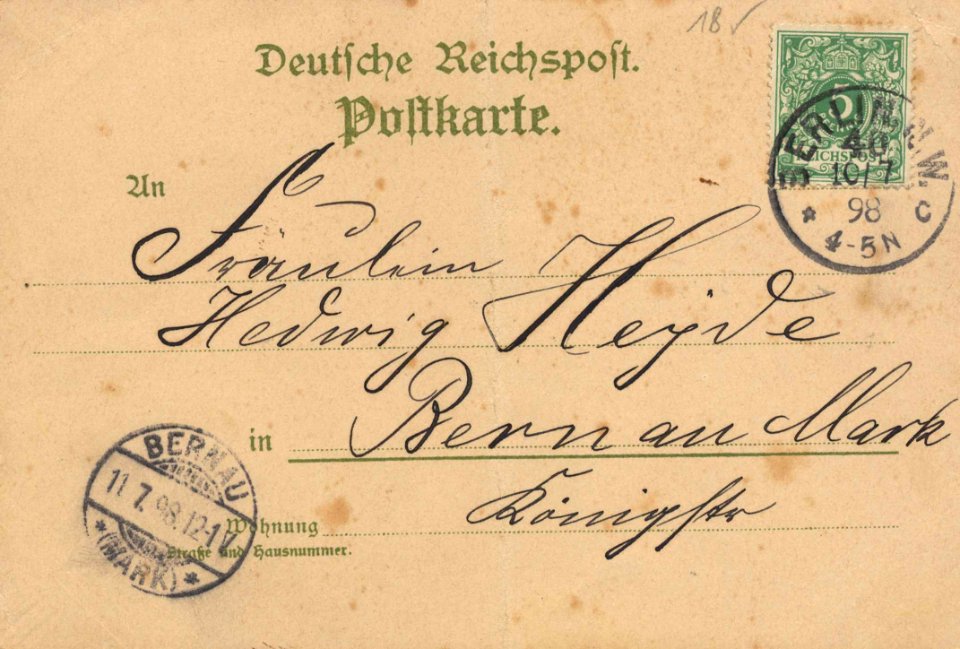 1B ✓
Deutsche Reichspost.
Postkarte.
5
REICHSPOST
BERLIN N.W.
40
10/7
98 C
4-5N
An
Fräulein
Hedwig Heyde
in Bernau Mark
Königstr
BERNAU
11.7.98.12-1V
(MARK)
Wohnung
Straße und Hausnummer.